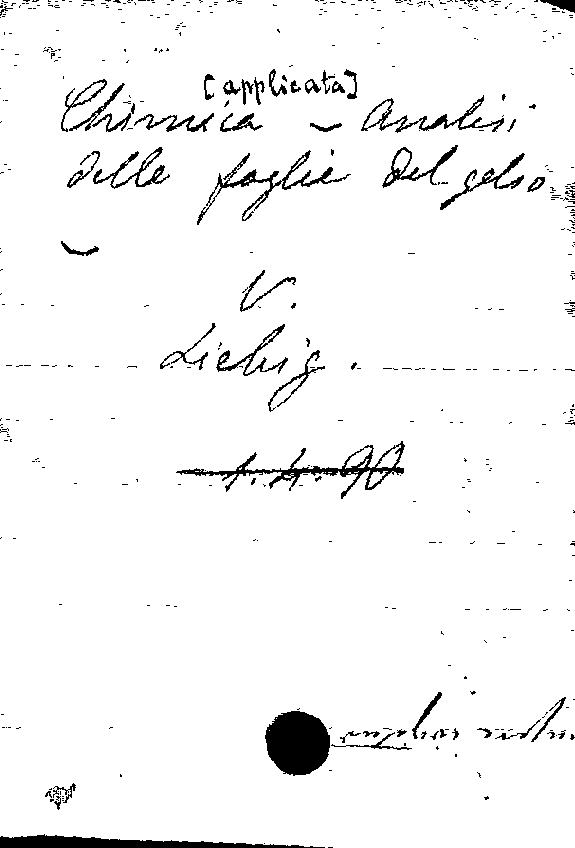 [applicata]
Chimica - Analisi
delle foglie del gelso
-
V.
Liebig.
1.4.90